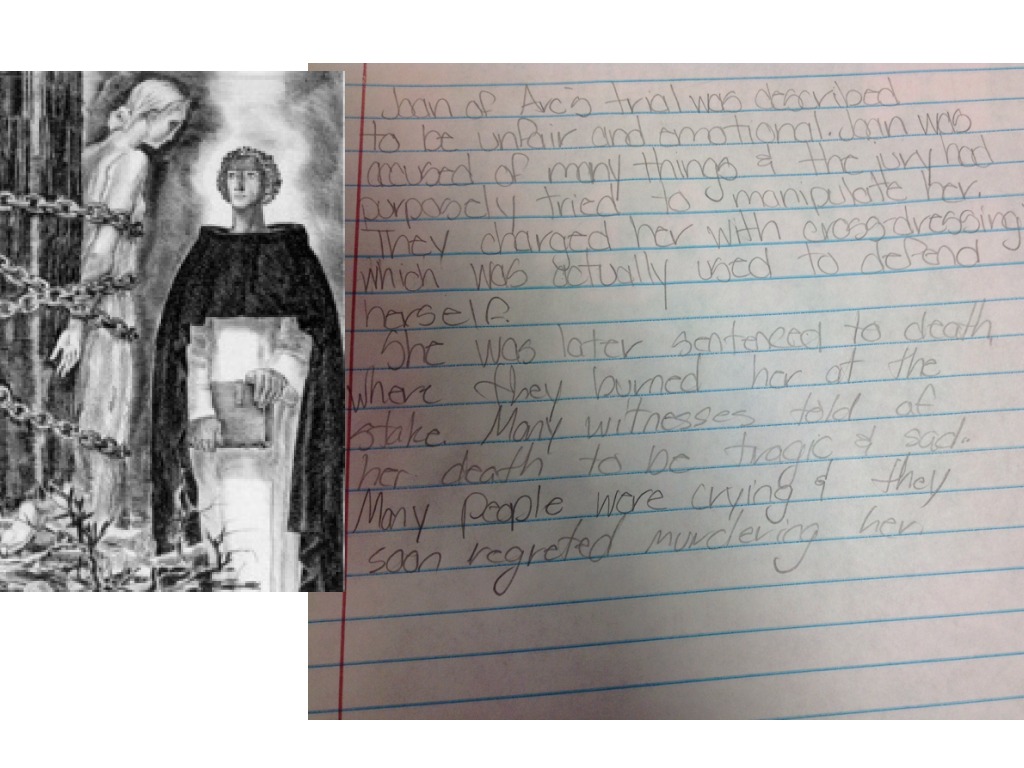 Joan of Arc's trial was described
to be unfair and emotional. Joan was
accused of many things & the jury had
purposely tried to manipulate her.
They charged her with crossdressing
which was actually used to defend
herself.
She was later sentenced to death,
where they burned her at the
stake. Many witnesses told of
her death to be tragic & sad.
Many people were crying & they
soon regreted murdering her.